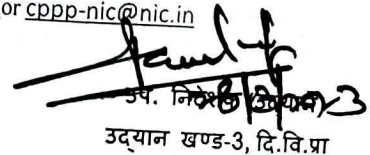 or cppp-nic@nic.in
उप. निदेशक (उद्यान)
उद्यान खण्ड-3, दि.वि.प्रा